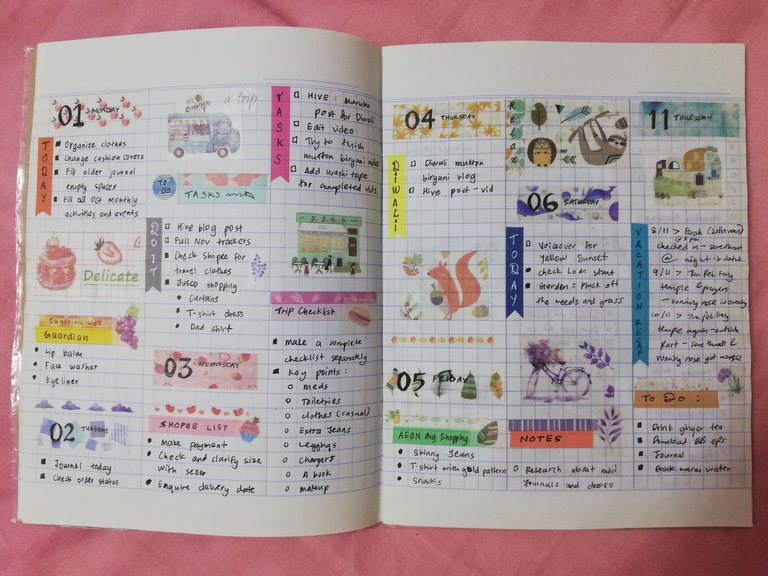 01 MONDAY
TODAY
Organize clothes
Change cushion covers
Fill older journal
empty spaces
Fill all Oct monthly
activities and events
Delicate
SHOPPING LIST
Guardian
Lip balm
Face washer
Eyeliner
02 TUESDAY
Journal today
Check order status
a trip
TO DO
TASKS
DO IT
Hive blog post
Full Nov trackers
Check Shopee for
travel clothes
Jusco shopping
Curtains
T-shirt dress
Dad shirt
03 WEDNESDAY
SHOPEE LIST
Make payment
Check and clarify size
with seller
Enquire delivery date
TASKS
HIVE : Maruku
post for Diwali
Edit video
Try to finish
mutton biryani video
Add washi tape
for completed vids
Trip Checklist
make a complete
checklist separately
Key points :
meds
Toiletries
clothes (casual)
Extra Jeans
Leggings
Chargers
A book
makeup
04 THURSDAY
DIWALI
Diwali mutton
biryani vlog
Hive post - vid
05 FRIDAY
AEON Big Shopping
Skinny Jeans
T-shirt with gold pattern
Snacks
Relax
06 SATURDAY
TODAY
Voiceover for
Yellow Sunset
check loan stmt
Garden : Pluck off
the weeds and grass
NOTES
Research about mini
journals and decos
11 THURSDAY
VACATION RECAP
8/11 > Perak (Sitiawan)
checked in - somethust
@ night -
9/11 > Tua Pek Kong
temple & prayers
- running nose is overdry
10/11 > Tua Pek Kong
temple again - outside
part - sore throat &
running nose got worse
TO DO :
Drink ginger tea
Download BB eps
Journal
Drink warm water